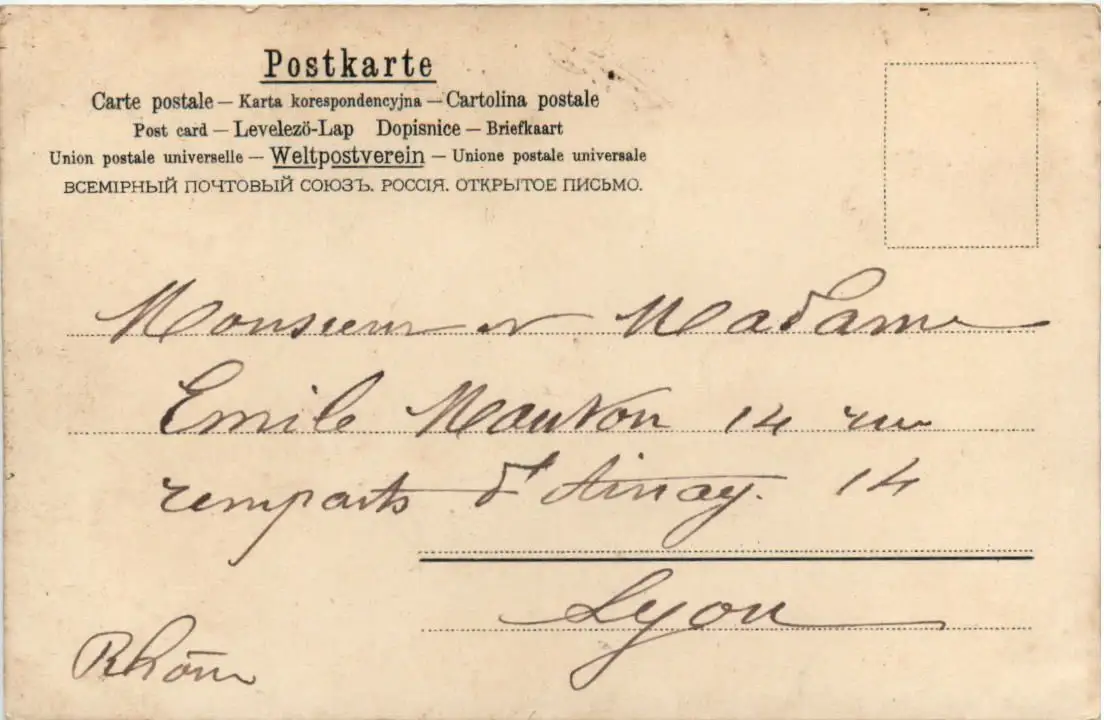 Postkarte
Carte postale — Karta korespondencyjna — Cartolina postale
Post card — Levelező-Lap Dopisnice — Briefkaart
Union postale universelle — Weltpostverein — Unione postale universale
ВСЕМІРНЫЙ ПОЧТОВЫЙ СОЮЗЪ. РОССІЯ. ОТКРЫТОЕ ПИСЬМО.
Monsieur et Madame
Emile Mouton 14 rue
remparts d'Ainay. 14
Lyon
Rhône